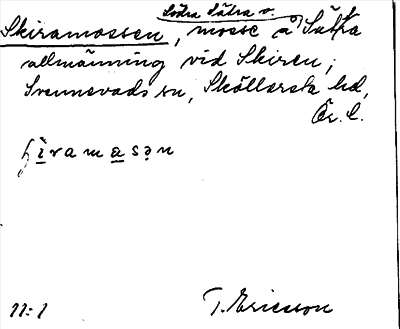 Södra Sätra o.
Skiramossen, mosse å Sätra
allmänning vid Skiren;
Svennevads sn, Sköllersta hd,
Ör. l.
ʃi̱rama̱sən
11:1
T. Ericsson